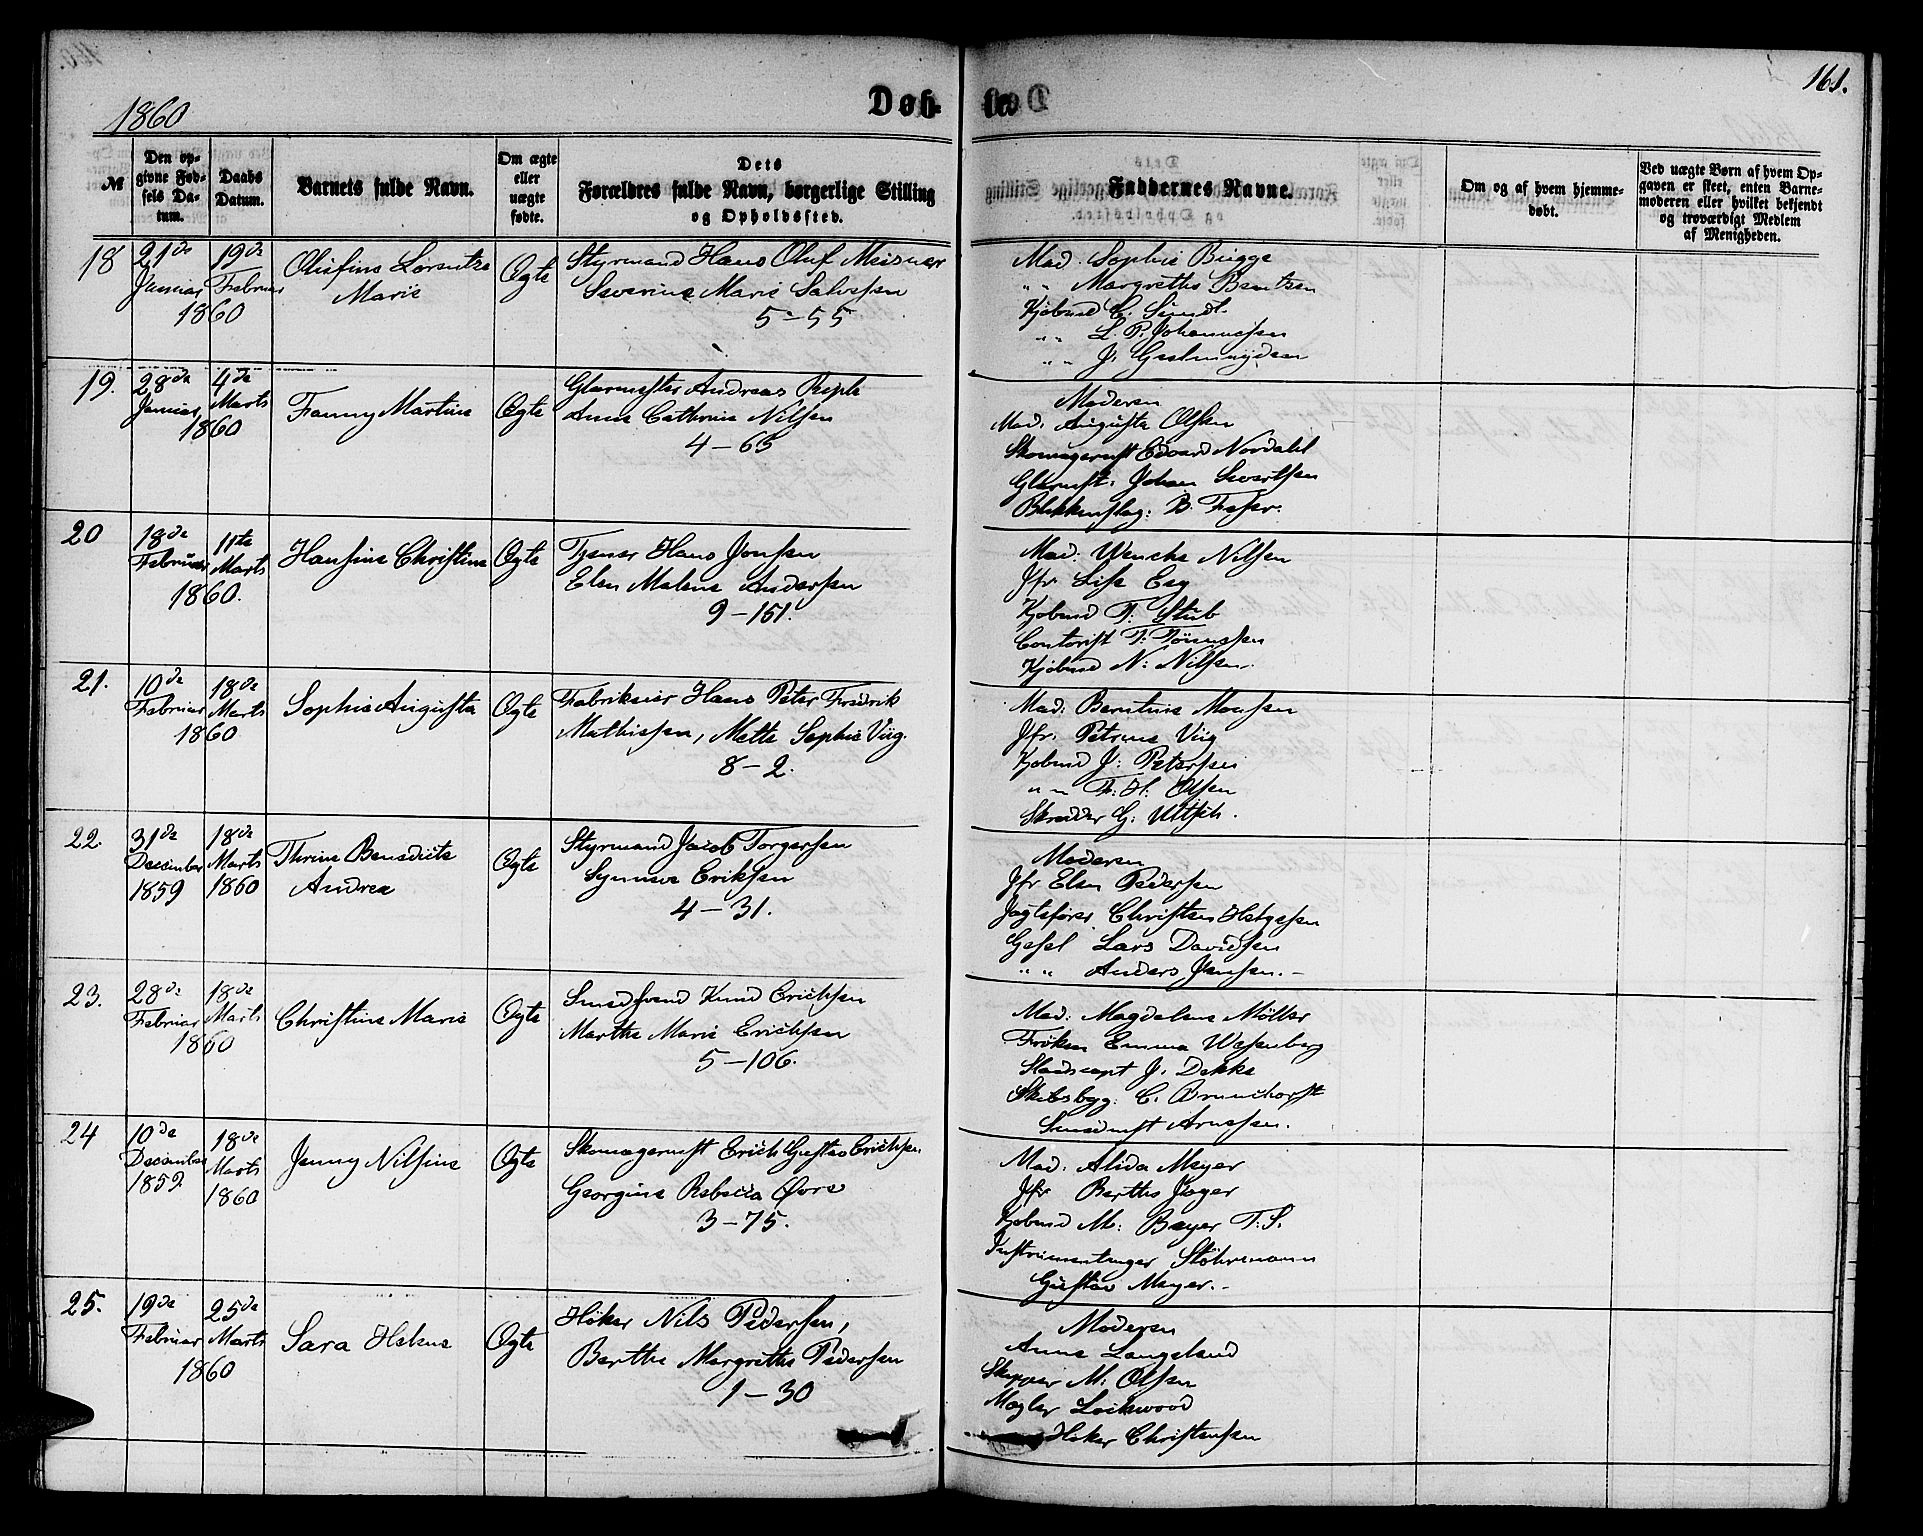 1860
Døb-
te.
161.
№
Den op-
givne Fød-
sels Da-
tum.
Daabs
Datum.
Barnets fulde Navn.
Om ægte
eller
uægte
fødte.
Dets
Forældres fulde Navn, borgerlige Stilling
og Opholdssted.
Faddernes Navne.
Om og af hvem hjemme-
døbt.
Ved uægte Børn af hvem Op-
gaven er skeet, enten Barne-
moderen eller hvilket bekjendt
og troværdigt Medlem
af Menigheden.
18
21de
Januar
19de
Februar
1860
Olufine Lorentze
Marie
Ægte
Styrmand Hans Oluf Meisner
Severine Marie Salvesen
5-55
Mad. Sophie Brigge
" " Margrethe Bentzen
Kjøbmd C. Sundt
" " L. P. Johannessen
" " J. Gjelmuyden
19.
28de
Januar
4de
Marts
1860
Fanny Martine
Ægte
Glarmester Andreas
Anne Cathrine Nilsen
4-65
Moderen
Mad. Augusta Olsen
Skomagermst Edvard Nordahl
Glarmst. Johan Sivertsen
Blikkenslag: B.
20
18de
Februar
11te
Marts
1860.
Hansine Christine
Ægte
Tjener Hans Jonsen
Elen Malene Andersen
9-151.
Mad. Wenche Nilsen
Jfr. Lise Eeg
Kjøbmd T. Stub
Contorist T. Tønnessen
Kjøbmd N. Nilsen.
21.
10de
Februar
18de
Marts
1860
Sophie Augusta
Ægte
Fabrikeier Hans Peter Fredrik
Mathissen, Mette Sophie Viig.
8-2.
Mad: Berntine Monsen
Jfr. Petrine Viig
Kjøbmd J: Petersen
" " T. H. Olsen
Skrædder G.
22.
31de
December
1859
18de
Marts
1860
Thrine Benedicte
Andrea
Ægte
Styrmand Jacob Torgersen
Synneve Eriksen
4-31.
Moderen
Jfr Elen Pedersen
Jagtefører Christen Helgesen
Gesel Lars Davidsen
" " Anders Jensen.
23.
28de
Februar
18de
Marts
1860
Christine Marie
Ægte
Smedsvend Knud Erichsen
Marthe Marie Erichsen
5-106.
Mad: Magdalene Møller
Frøken Emma Wesenberg
Stadscapt J. Dekke
Skibsbyg: C. Brunchorst
Smedmst Arnesen.
24
10de
December
1852
18de
Marts
1860
Jenny Nilsine
Ægte
Skomagermst Erich Gustav Erichsen
Georgine Rebecca Øvre
3-75.
Mad. Alida Meyer
Jfr Berthe Jæger
Kjøbmd M: Beyer T. S.
Instrumentmager Stöhrmann
Gustav Meyer.
25.
19de
Februar
25de
Marts
1860
Sara Helene
Ægte
Høker Nils Pedersen,
Berthe Margrethe Pedersen
1-30
Moderen
Anne Langeland
Skipper M. Olsen
Mægler Lockwood
Høker Christensen